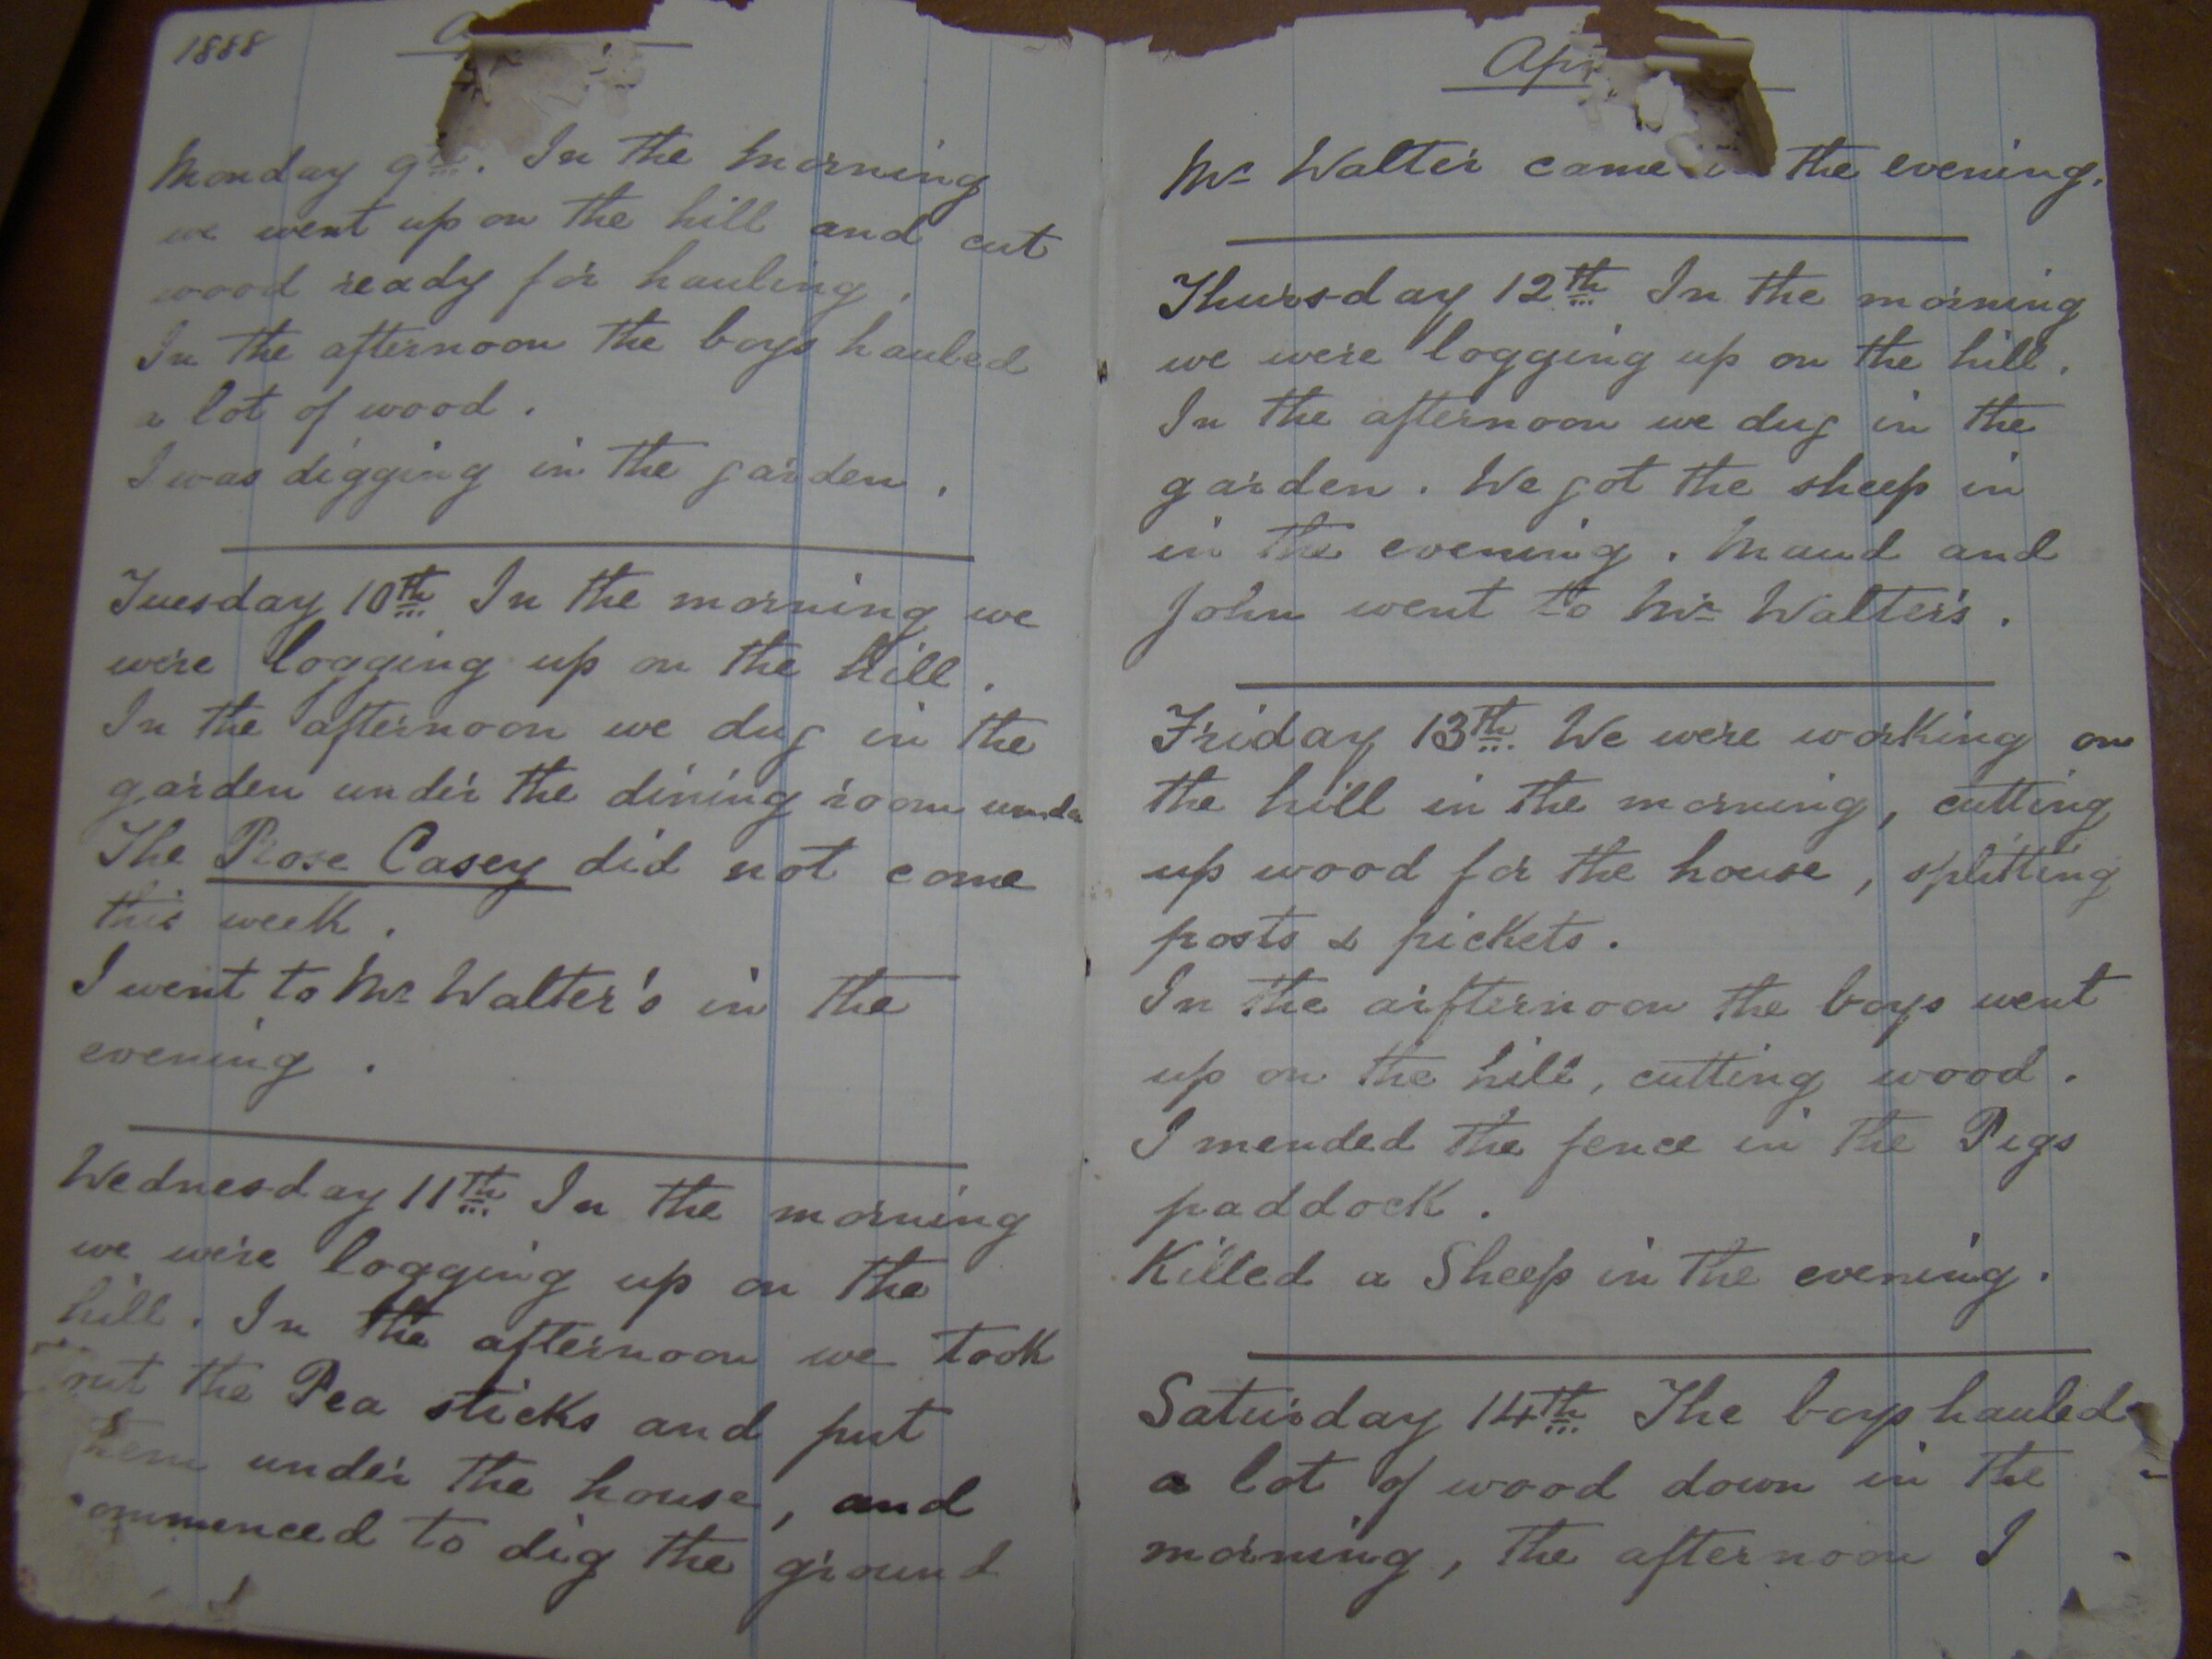 1888
Monday 9th. In the morning
we went up on the hill and cut
wood ready for hauling.
In the afternoon the boys hauled
a lot of wood.
I was digging in the garden.
Tuesday 10th In the morning we
were logging up on the hill.
In the afternoon we dug in the
garden under the dining room
The Rose Casey did not come
this week.
I went to Mr Walter's in the
evening.
Wednesday 11th In the morning
we were logging up on the
hill. In the afternoon we took
out the Pea sticks and put
them under the house, and
commenced to dig the ground
Apr
Mr Walter came in the evening.
Thursday 12th In the morning
we were logging up on the hill.
In the afternoon we dug in the
garden. We got the sheep in
in the evening. Maud and
John went to Mr Walters.
Friday 13th. We were working on
the hill in the morning, cutting
up wood for the house, splitting
posts & pickets.
In the airfternoon the boys went
up on the hill, cutting wood.
I mended the fence in the Pigs
paddock.
Killed a Sheep in the evening.
Saturday 14th The boys hauled
a lot of wood down in the
morning, the afternoon I